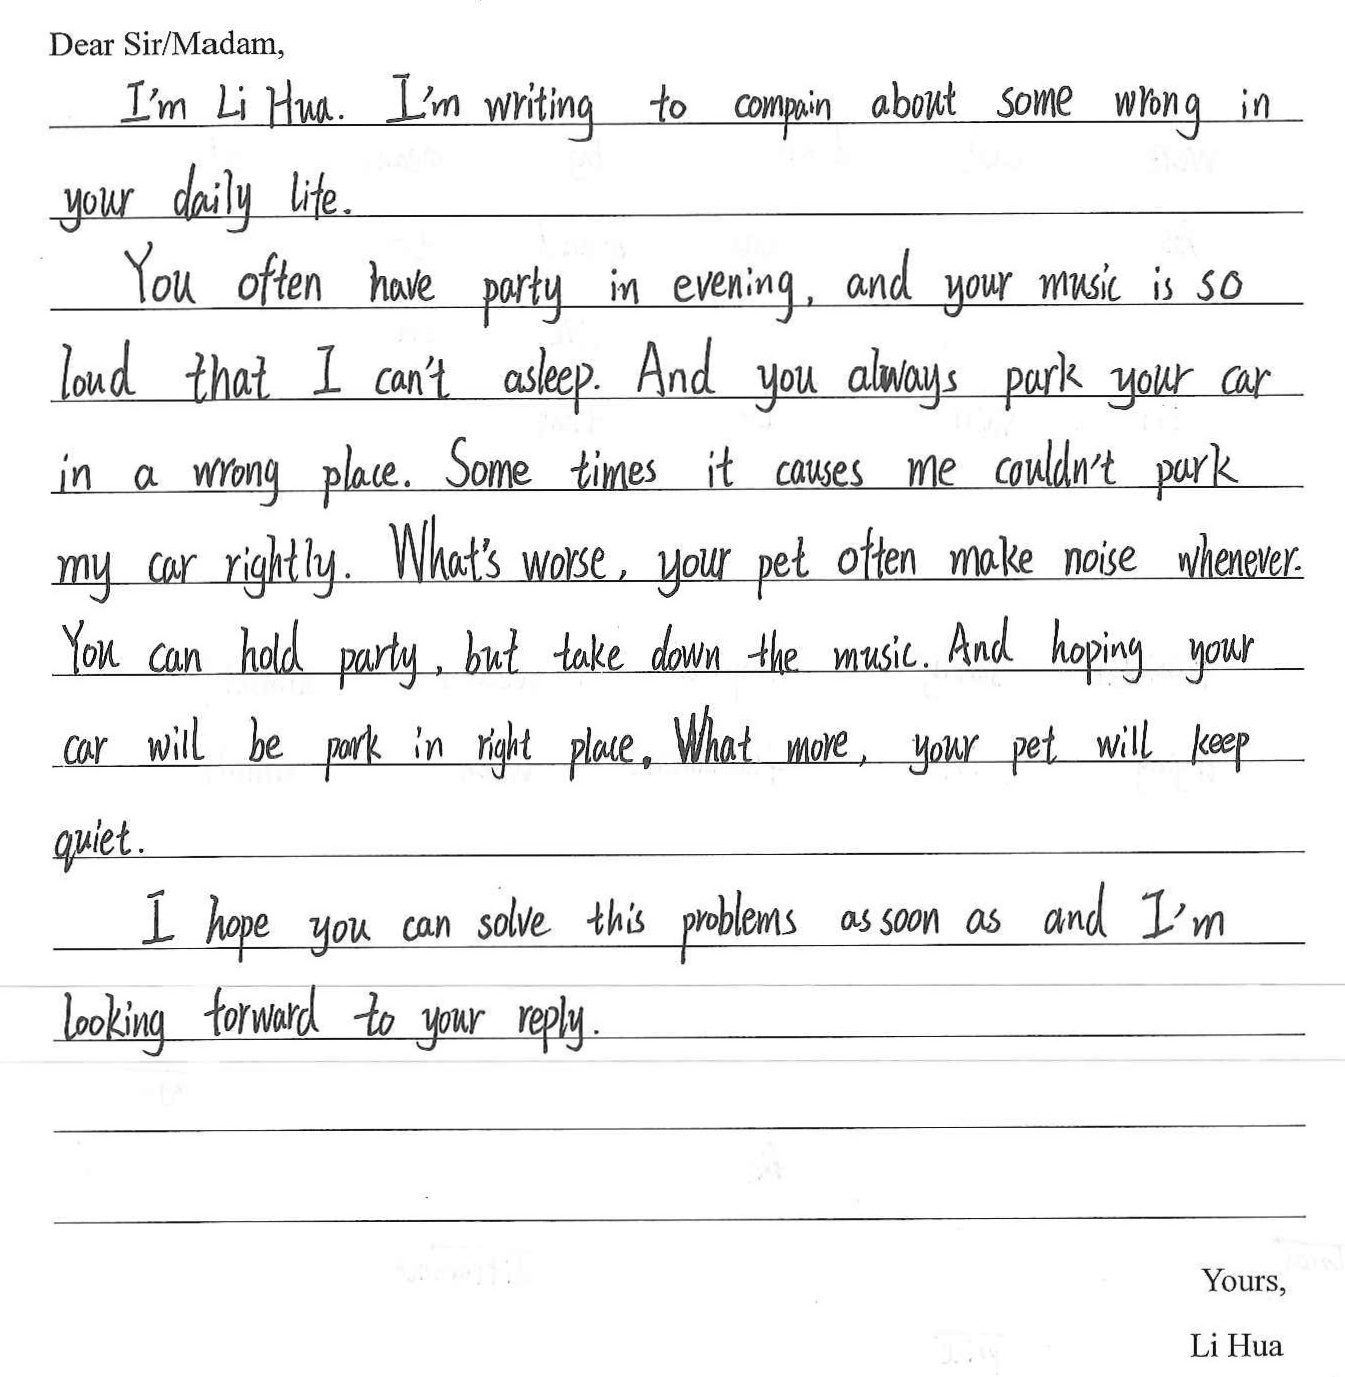 Dear Sir/Madam,
I'm Li Hua. I'm writing to compain about some wrong in
your daily life.
You often have party in evening, and your music is so
loud that I can't asleep. And you always park your car
in a wrong place. Some times it causes me couldn't park
my car rightly. What's worse, your pet often make noise whenever.
You can hold party, but take down the music. And hoping your
car will be park in right place. What more, your pet will keep
quiet.
I hope you can solve this problems as soon as and I'm
looking forward to your reply.
Yours,
Li Hua